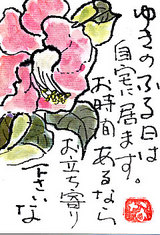 ゆきのふる日は
自宅に居ます。
お時間あるなら
お立ち寄り
下さいな